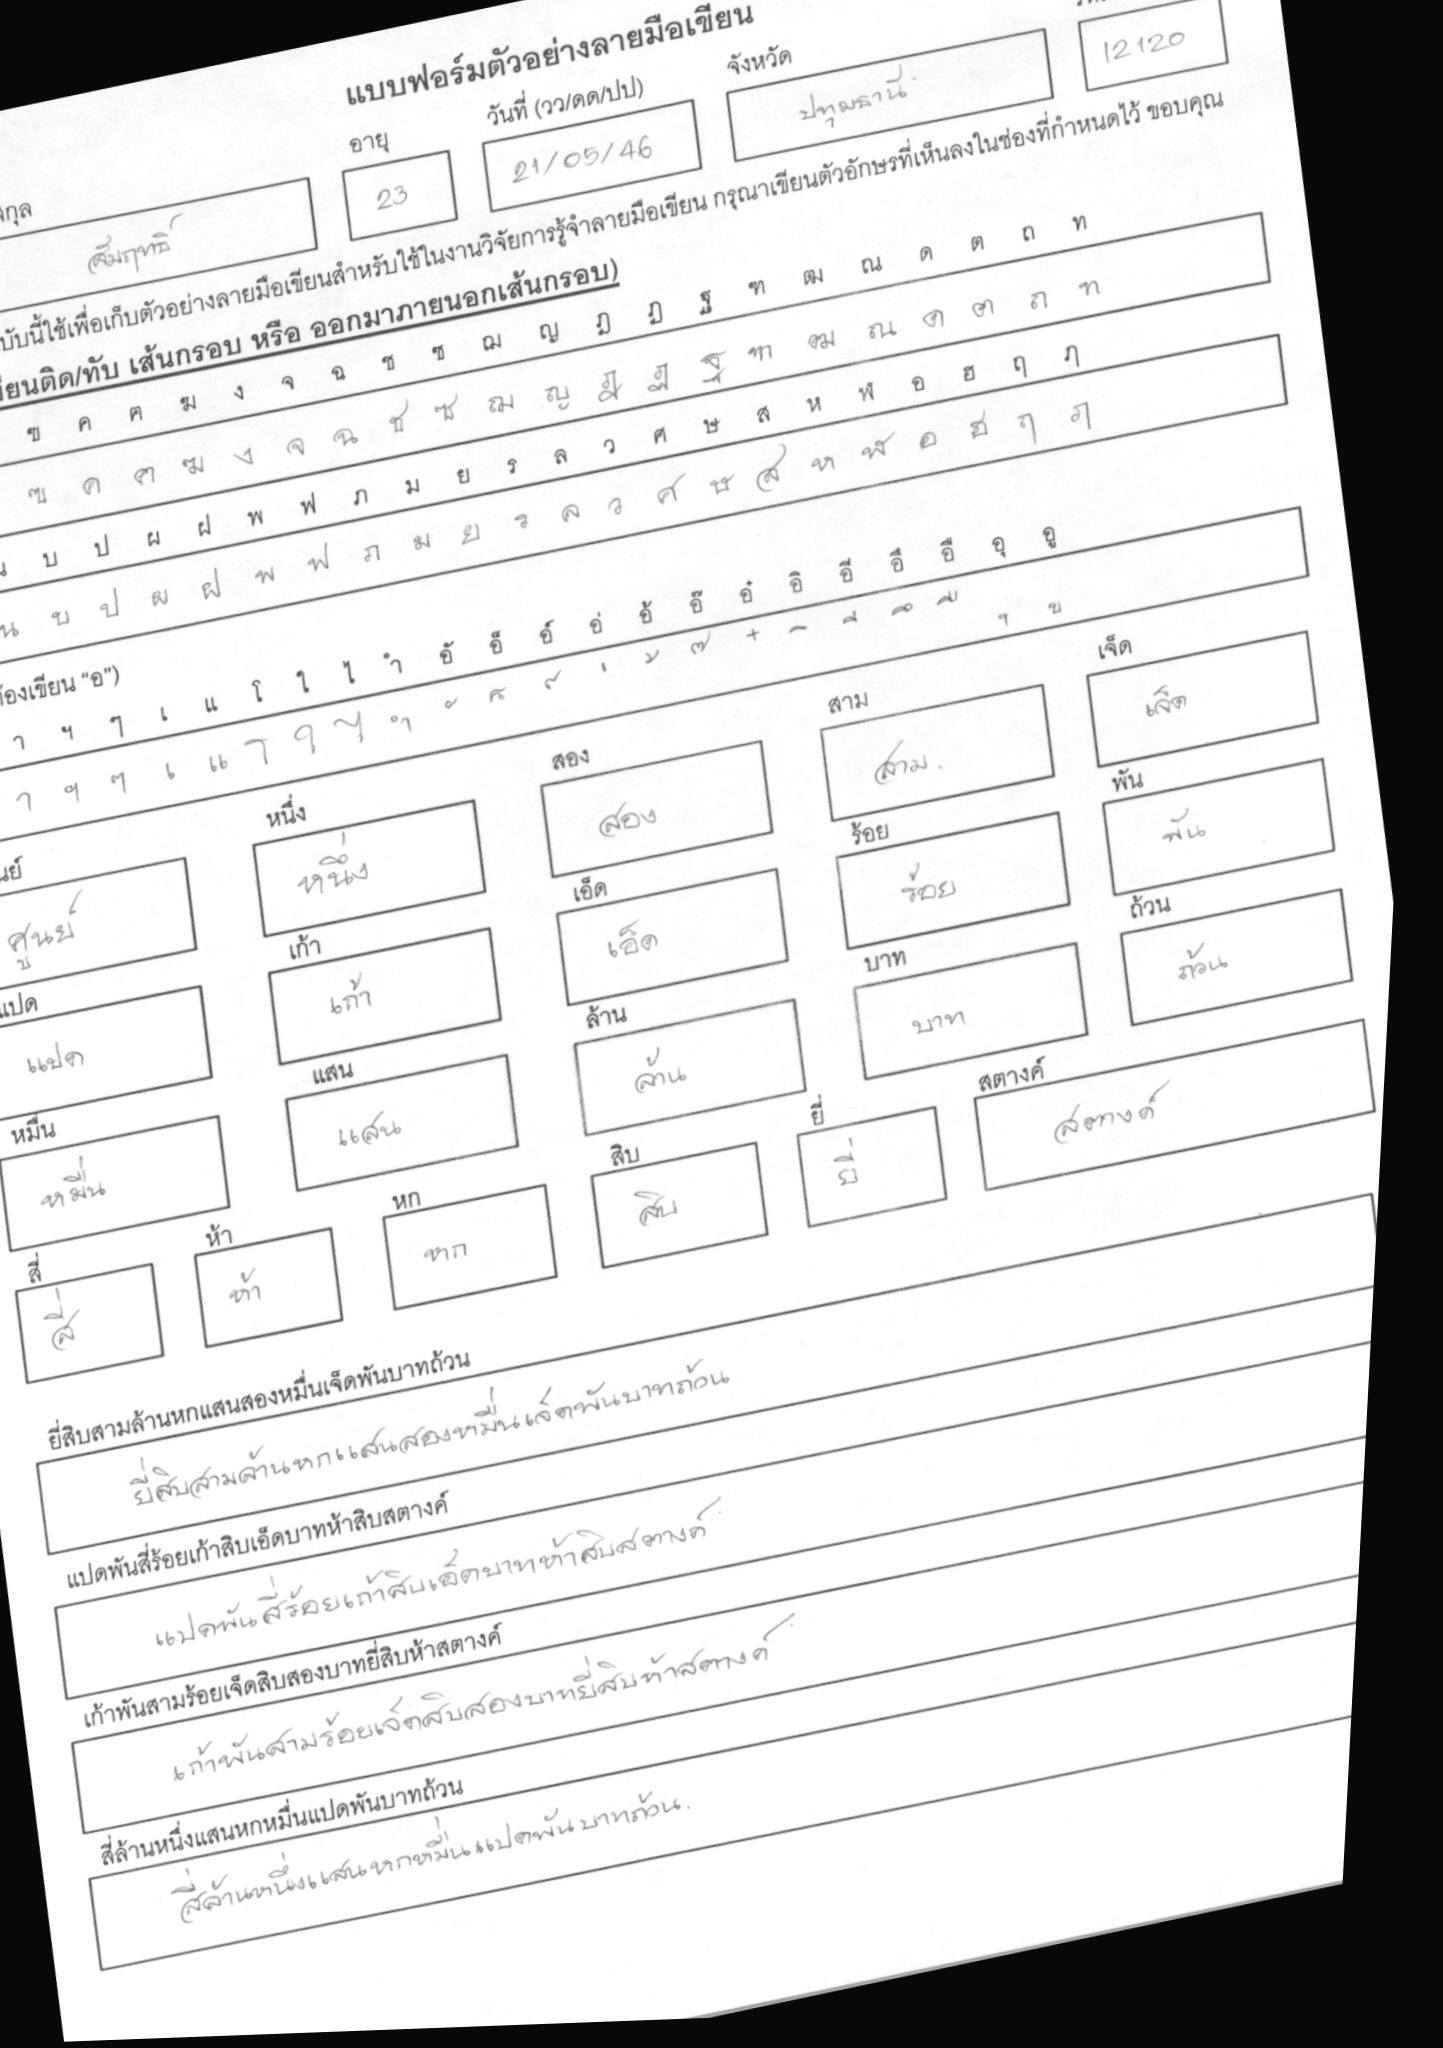 แบบฟอร์มตัวอย่างลายมือเขียน
อายุ วันที่ (วว/ดด/ปป) จังหวัด
สัมฤทธิ์ 23 21/05/46 ปทุมธานี 12120
บับนี้ใช้เพื่อเก็บตัวอย่างลายมือเขียนสำหรับใช้ในงานวิจัยการรู้จำลายมือเขียน กรุณาเขียนตัวอักษรที่เห็นลงในช่องที่กำหนดไว้ ขอบคุณ
ขียนติด/ทับ เส้นกรอบ หรือ ออกมาภายนอกเส้นกรอบ)
ข ค ฅ ฆ ง จ ฉ ช ซ ฌ ญ ฎ ฏ ฐ ฑ ฒ ณ ด ต ถ ท
ฃ ค ฅ ฆ ง จ ฉ ช ซ ฌ ญ ฎ ฏ ฐ ฑ ฒ ณ ด ต ถ ท
น บ ป ผ ฝ พ ฟ ภ ม ย ร ล ว ศ ษ ส ห ฬ อ ฮ ฤ ฦ
น บ ป ผ ฝ พ ฟ ภ ม ย ร ล ว ศ ษ ส ห ฬ อ ฮ ฤ ฦ
้องเขียน “อ”)
า ฯ ๆ เ แ โ ใ ไ ำ อั อ็ อ์ อ่ อ้ อ๊ อ๋ อิ อี อึ อื อุ อู
า ฯ ๆ เ แ โ ใ ไ ำ ั ็ ์ ่ ้ ๊ ๋ ิ ี ึ ื ุ ู
นย์ หนึ่ง สอง สาม เจ็ด
ศูนย์ หนึ่ง สอง สาม. เจ็ด
แปด เก้า เอ็ด ร้อย พัน
แปด เก้า เอ็ด ร้อย พัน
หมื่น แสน ล้าน บาท ถ้วน
หมื่น แสน ล้าน บาท ถ้วน
สี่ ห้า หก สิบ ยี่ สตางค์
สี่ ห้า หก สิบ ยี่ สตางค์
ยี่สิบสามล้านหกแสนสองหมื่นเจ็ดพันบาทถ้วน
ยี่สิบสามล้านหกแสนสองหมื่นเจ็ดพันบาทถ้วน
แปดพันสี่ร้อยเก้าสิบเอ็ดบาทห้าสิบสตางค์
แปดพันสี่ร้อยเก้าสิบเอ็ดบาทห้าสิบสตางค์
เก้าพันสามร้อยเจ็ดสิบสองบาทยี่สิบห้าสตางค์
เก้าพันสามร้อยเจ็ดสิบสองบาทยี่สิบห้าสตางค์
สี่ล้านหนึ่งแสนหกหมื่นแปดพันบาทถ้วน
สี่ล้านหนึ่งแสนหกหมื่นแปดพันบาทถ้วน.